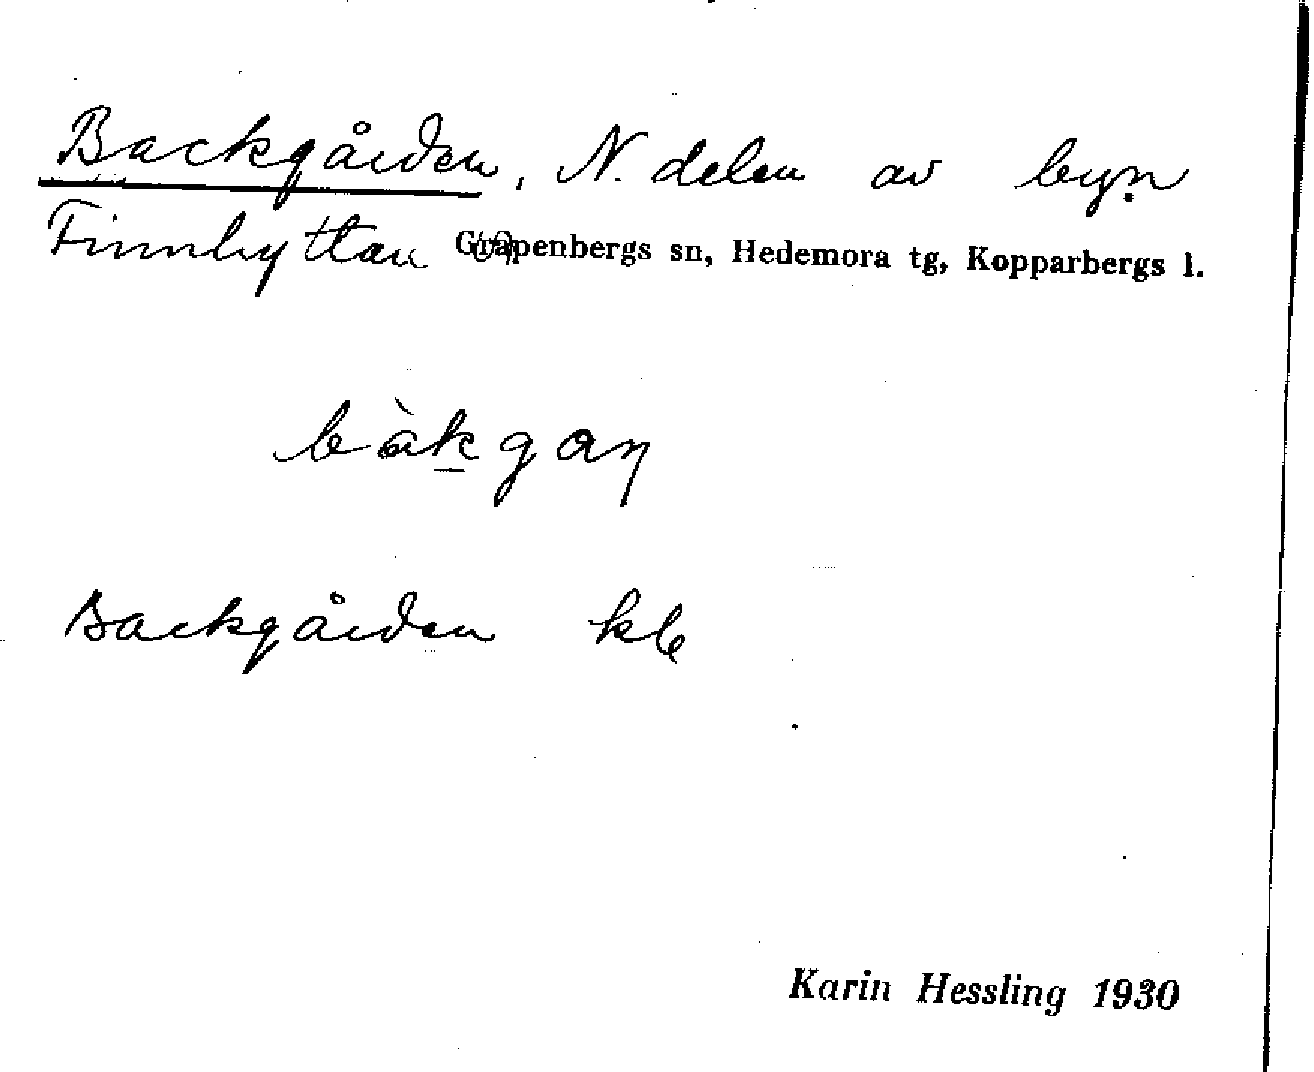 Backgården, N. delen av byn
Finnhyttan Garpenbergs sn, Hedemora tg, Kopparbergs l.
bàkgaƞ
Backgården kb
Karin Hessling 1930